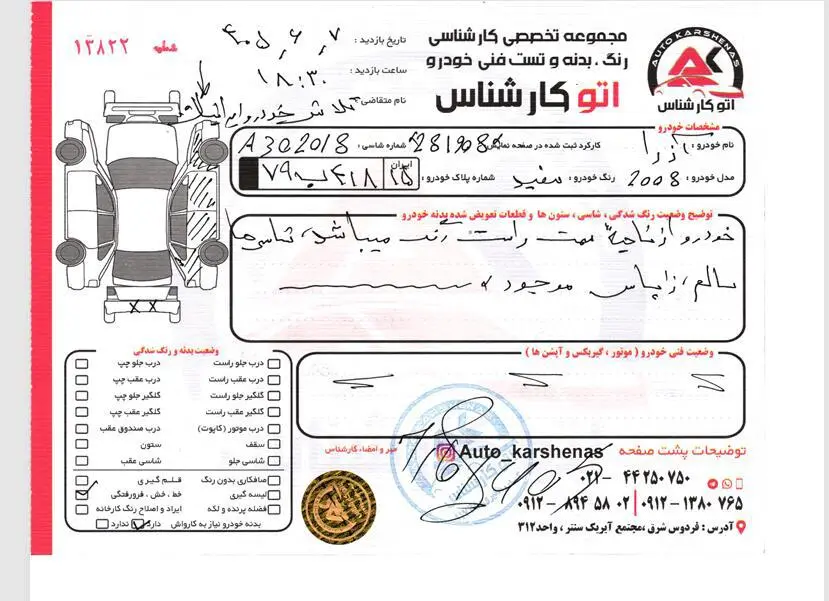 مجموعه تخصصی کارشناسی
رنگ ، بدنه و تست فنی خودرو
اتو کارشناس
AUTO KARSHENAS
AK
اتو کارشناس
تاریخ بازدید : ۴۰۵, ۶, ۷
ساعت بازدید : ۱۸:۳۰
نام متقاضی :
شماره ۱۳۸۲۲
مشخصات خودرو
نام خودرو : آزرا
کارکرد ثبت شده در صفحه نمایش :
شماره شاسی : A302018
مدل خودرو : 2008
رنگ خودرو : سفید
شماره پلاک خودرو :
ایران
توضیح وضعیت رنگ شدگی ، شاسی ، ستون ها و قطعات تعویض شده بدنه خودرو
خودرو از ناحیه سمت راست رنگ میباشد، شاسی ها
سالم، زاپاس موجود
وضعیت فنی خودرو ( موتور ، گیربکس و آپشن ها )
وضعیت بدنه و رنگ شدگی
درب جلو راست
درب جلو چپ
درب عقب راست
درب عقب چپ
گلگیر جلو راست
گلگیر جلو چپ
گلگیر عقب راست
گلگیر عقب چپ
درب موتور (کاپوت)
درب صندوق عقب
سقف
ستون
شاسی جلو
شاسی عقب
صافکاری بدون رنگ
قلم گیری
لیسه گیری
خط ، خش ، فرورفتگی
فضله پرنده و لکه
ایراد و اصلاح رنگ کارخانه
بدنه خودرو نیاز به کارواش دارد ندارد
توضیحات پشت صفحه
Auto_karshenas
مهر و امضاء کارشناس
۰۲۱- ۴۴ ۲۵۰ ۷۵۰
۰۹۱۲- ۸۹۴ ۵۸ ۰۲ | ۰۹۱۲- ۱۳۸۰ ۷۶۵
آدرس : فردوس شرق ،مجتمع آیریک سنتر ، واحد۳۱۲